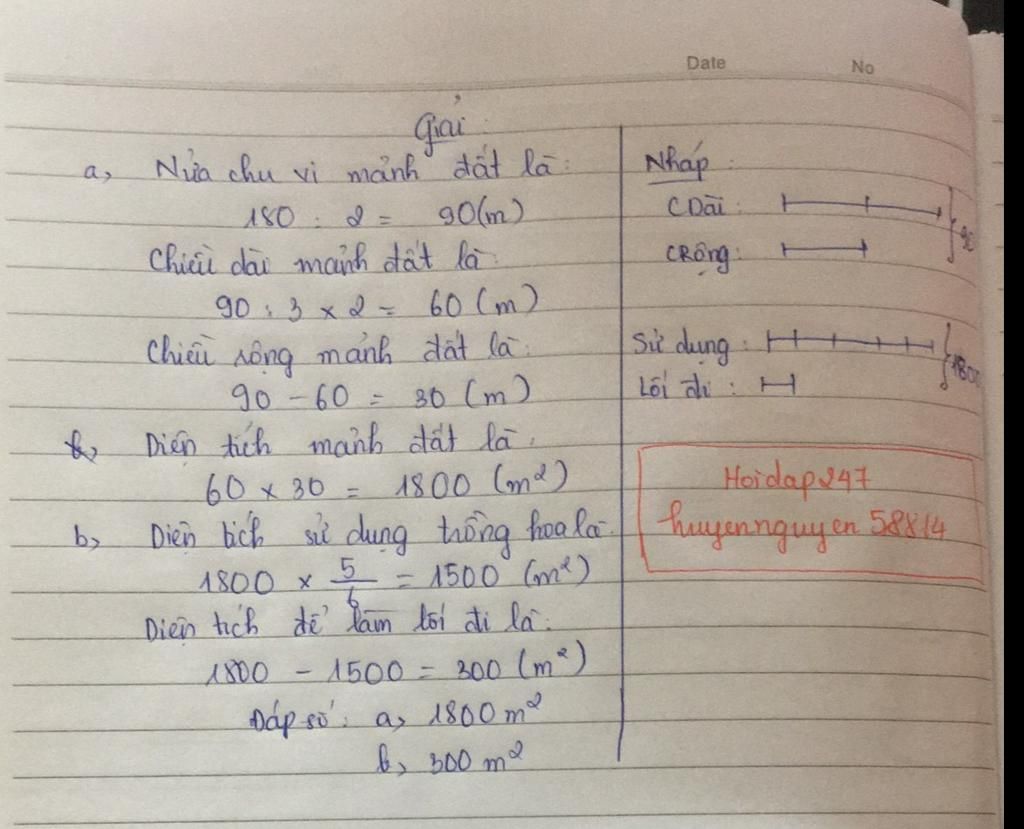 Date No
Giải
a, Nửa chu vi mảnh đất là:
180 : 2 = 90(m)
Chiều dài mảnh đất là:
90 : 3 x 2 = 60 (m)
Chiều rộng mảnh đất là:
90 - 60 = 30 (m)
Diện tích mảnh đất là:
60 x 30 = 1800 (m²)
b, Diện tích sử dụng trồng hoa là:
1800 x 5/6 = 1500 (m²)
Diện tích để làm lối đi là:
1800 - 1500 = 300 (m²)
Đáp số: a, 1800 m²
b, 300 m²
Nháp:
CDài: 90
CRộng:
Sử dụng: 1800
Lối đi:
Hoidap247
huyennguyen58814